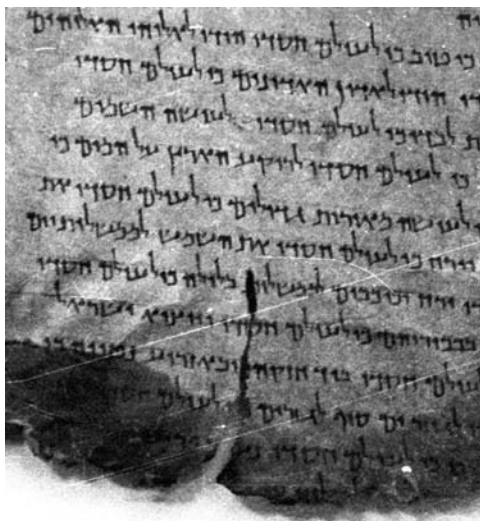 כי טוב כי לעולם חסדו הודו לאלוהי האלוהים
הודו לאדון האדונים כי לעולם חסדו
לבדו כי לעולם חסדו לעושה השמים
כי לעולם חסדו לרוקע הארץ על המים כי
לעושה מאורות גדולים כי לעולם חסדו את
וירח כי לעולם חסדו את השמש לממשלות יום
ירח וכוכבים לממשלות בלילה כי לעולם חסדו
בבכוריהם כי לעולם חסדו ויוצא ישראל
לעולם חסדו ביד חזקה ובאזרוע נטויה כי
ים סוף לגזרים כי לעולם חסדו
כי לעולם חסדו